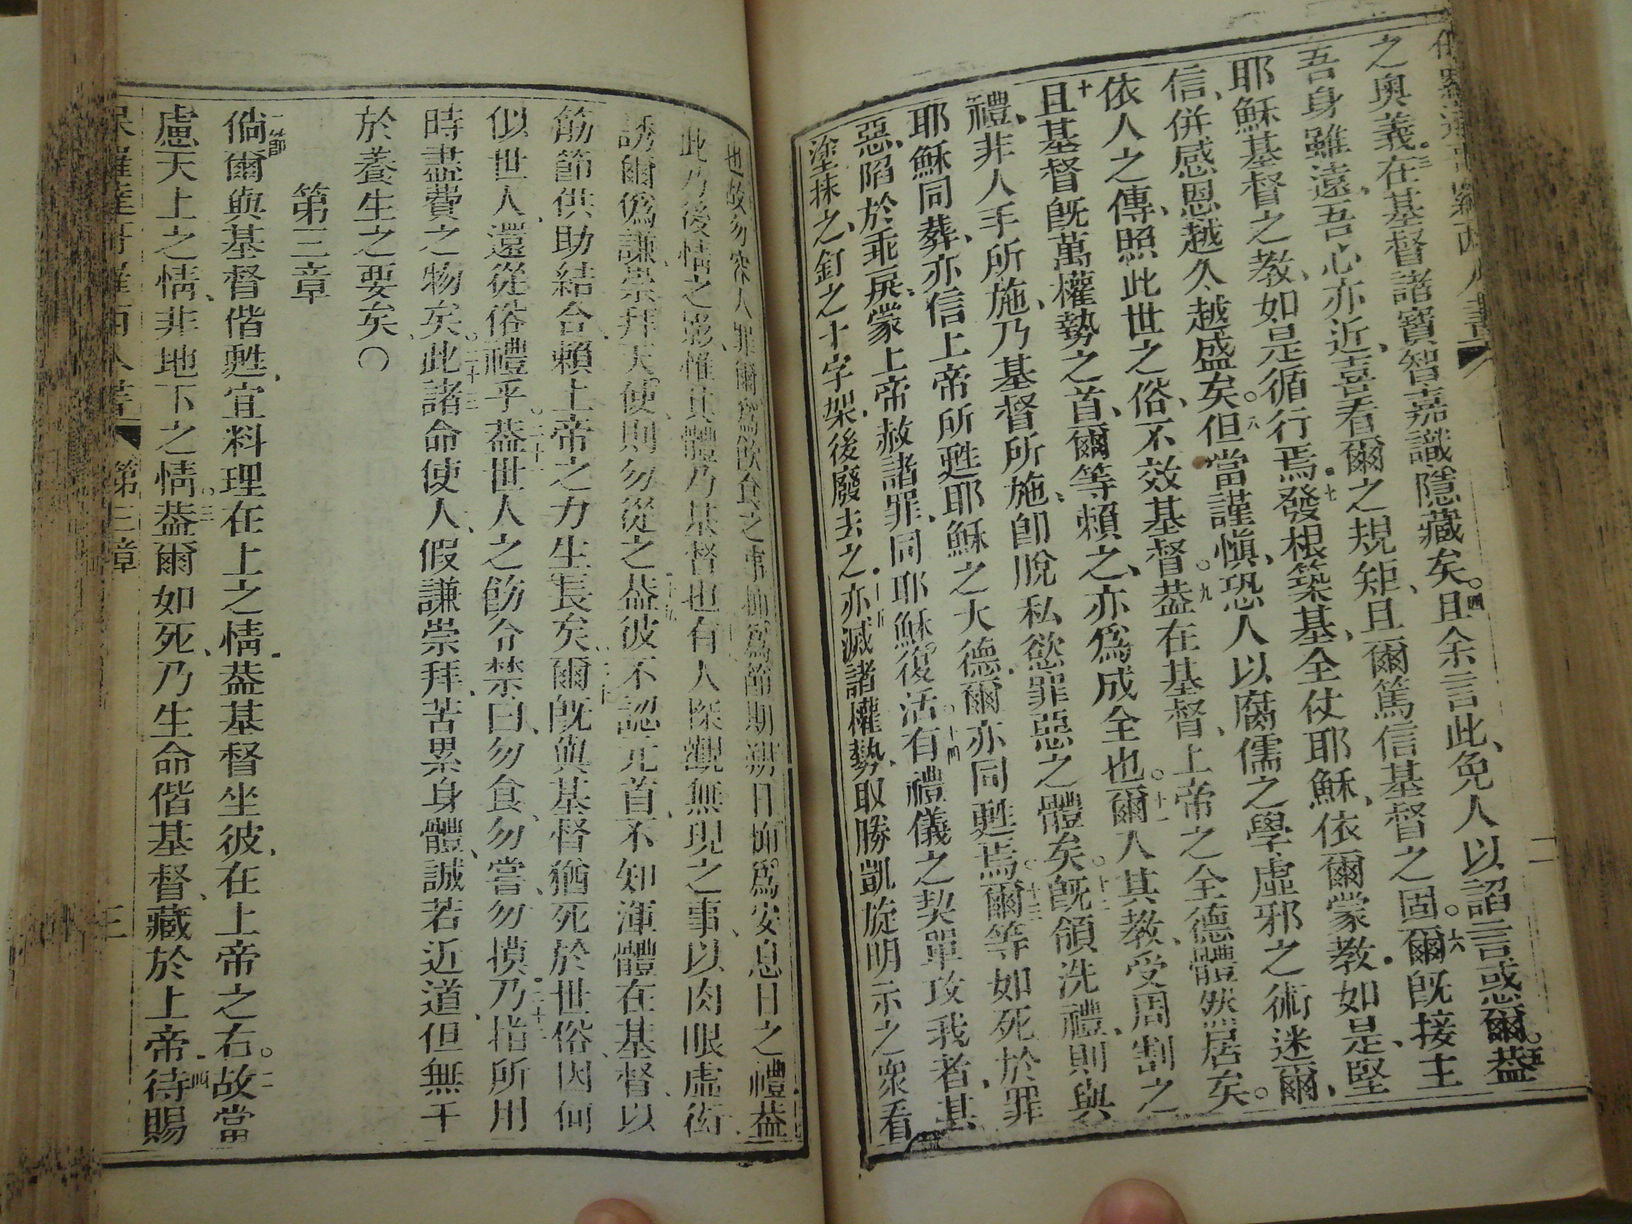 之奧義。三在基督諸寶智嘉識隱藏矣。四且余言此、免人以諂言惑爾。五蓋
吾身雖遠、吾心亦近、喜看爾之規矩、且爾篤信基督之固。六爾旣接主
耶穌基督之教、如是循行焉。七發根築基、全仗耶穌、依爾蒙教、如是堅
信、併感恩越久越盛矣。八但當謹愼、恐人以腐儒之學、虛邪之術迷爾、
依人之傳、照此世之俗、不效基督。九蓋在基督、上帝之全德體然居矣。
十且基督旣萬權勢之首、爾等賴之、亦爲成全也。十一爾人其教、受周割之
禮、非人手所施、乃基督所施、卽脫私慾罪惡之體矣。十二旣領洗禮、則與
耶穌同葬、亦信上帝所甦耶穌之大德、爾亦同甦焉。十三爾等如死於罪
惡、陷於乖戾、蒙上帝赦諸罪、同耶穌復活。十四有禮儀之契單攻我者、基
塗抹之、釘之十字架、後廢去之。十五亦滅諸權勢、取勝凱旋、明示之衆看
也。故勿容人罪爾、爲飮食之事、抑爲節期朔日、抑爲安息日之禮。蓋
此乃後情之影、惟其體乃基督也。有人探觀無現之事、以肉眼虛衒
誘爾僞謙、崇拜天使、則勿從之。蓋彼不認元首、不知渾體在基督、以
筋節供助結合、賴上帝之力生長矣。二十爾旣與基督猶死於世俗、因何
似世人、還從俗禮乎。二十一蓋世人之飭令禁曰、勿食、勿嘗、勿摸。二十二乃指所用
時盡費之物矣。二十三此諸命使人、假謙崇拜、苦累身體、誠若近道、但無干
於養生之要矣〇
第三章
一節倘爾與基督偕甦、宜料理在上之情、蓋基督坐彼、在上帝之右。二故當
慮天上之情、非地下之情。三蓋爾如死、乃生命偕基督、藏於上帝。四待賜
第三章
三